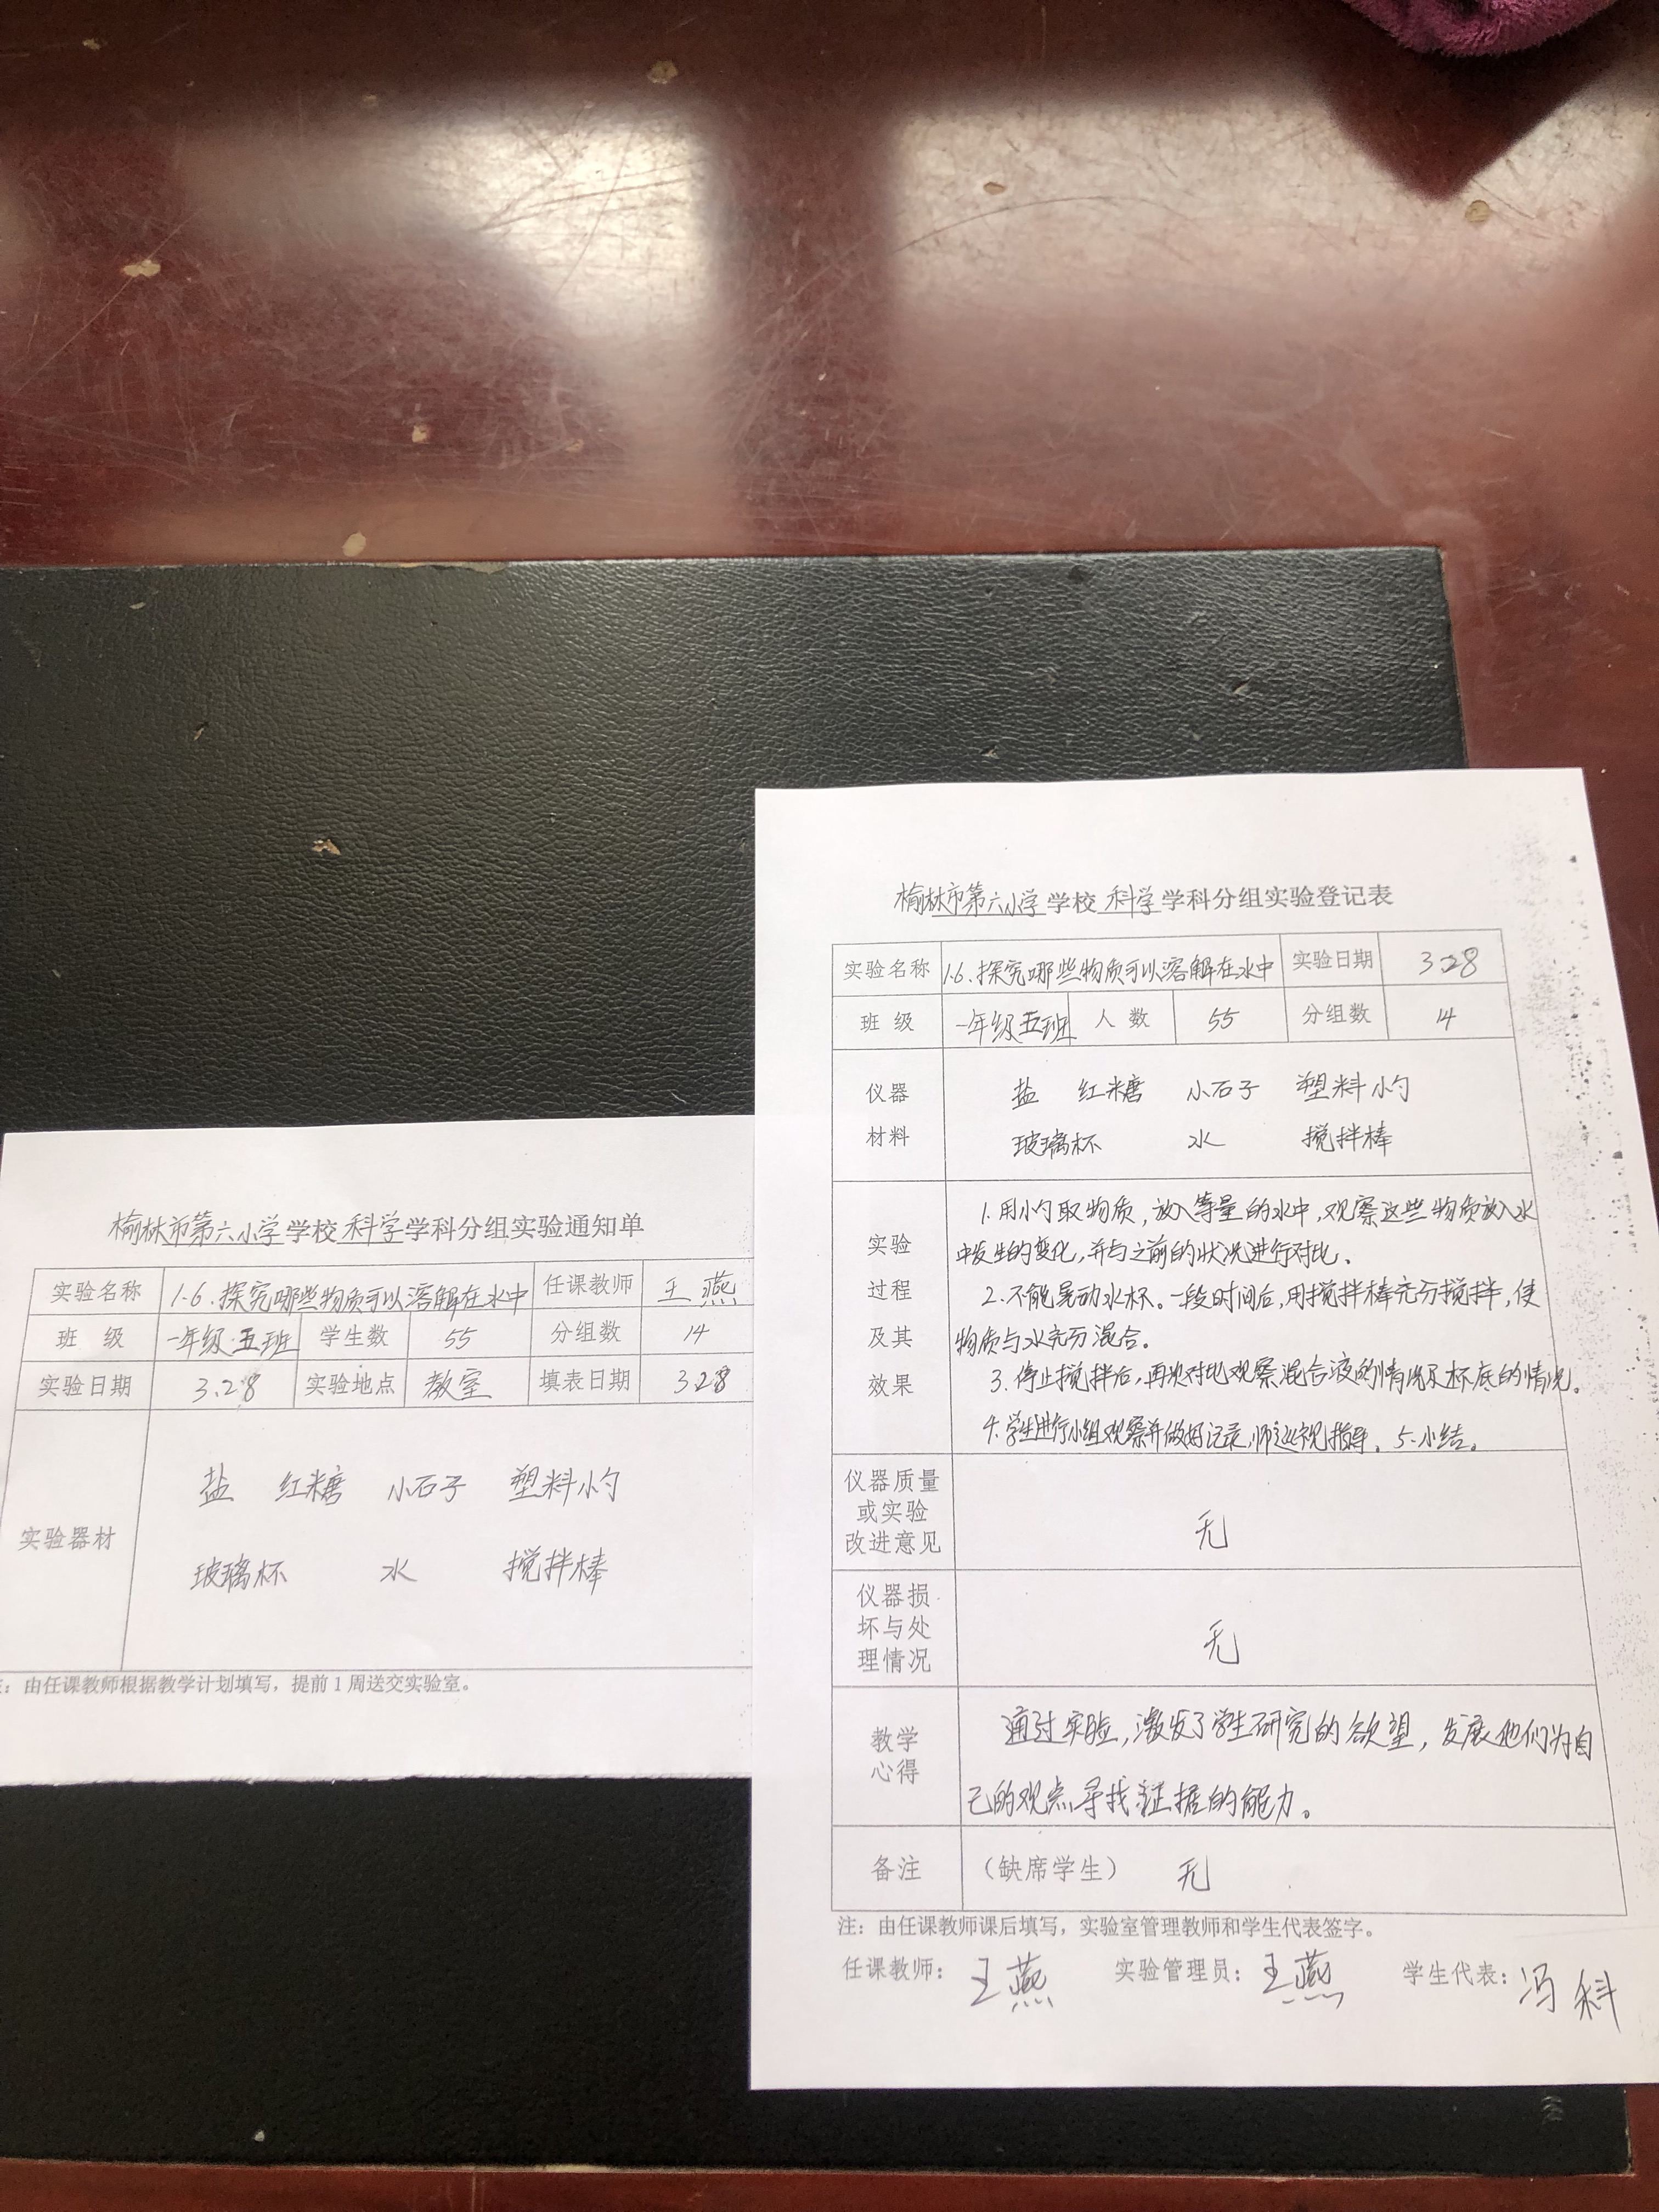 榆林市第六小学学校科学学科分组实验通知单
实验名称 1.6.探究哪些物质可以溶解在水中 任课教师 王燕
班 级 一年级五班 学生数 55 分组数 14
实验日期 3.28 实验地点 教室 填表日期 3.28
实验器材
盐 红糖 小石子 塑料小勺
玻璃杯 水 搅拌棒
：由任课教师根据教学计划填写，提前1周送交实验室。
榆林市第六小学学校科学学科分组实验登记表
实验名称 1.6.探究哪些物质可以溶解在水中 实验日期 3.28
班 级 一年级五班 人 数 55 分组数 14
仪器
材料
盐 红糖 小石子 塑料小勺
玻璃杯 水 搅拌棒
实验
过程
及其
效果
1.用小勺取物质，放入等量的水中，观察这些物质放入水
中发生的变化，并与之前的状况进行对比。
2.不能晃动水杯。一段时间后，用搅拌棒充分搅拌，使
物质与水充分混合。
3.停止搅拌后，再次对比观察混合液的情况及杯底的情况。
4.学生进行小组观察并做好记录，师巡视指导。5.小结。
仪器质量
或实验
改进意见
无
仪器损
坏与处
理情况
无
教学
心得
通过实验，激发了学生研究的欲望，发展他们为自
己的观点寻找证据的能力。
备注 （缺席学生） 无
注：由任课教师课后填写，实验室管理教师和学生代表签字。
任课教师：王燕 实验管理员：王燕 学生代表：冯科